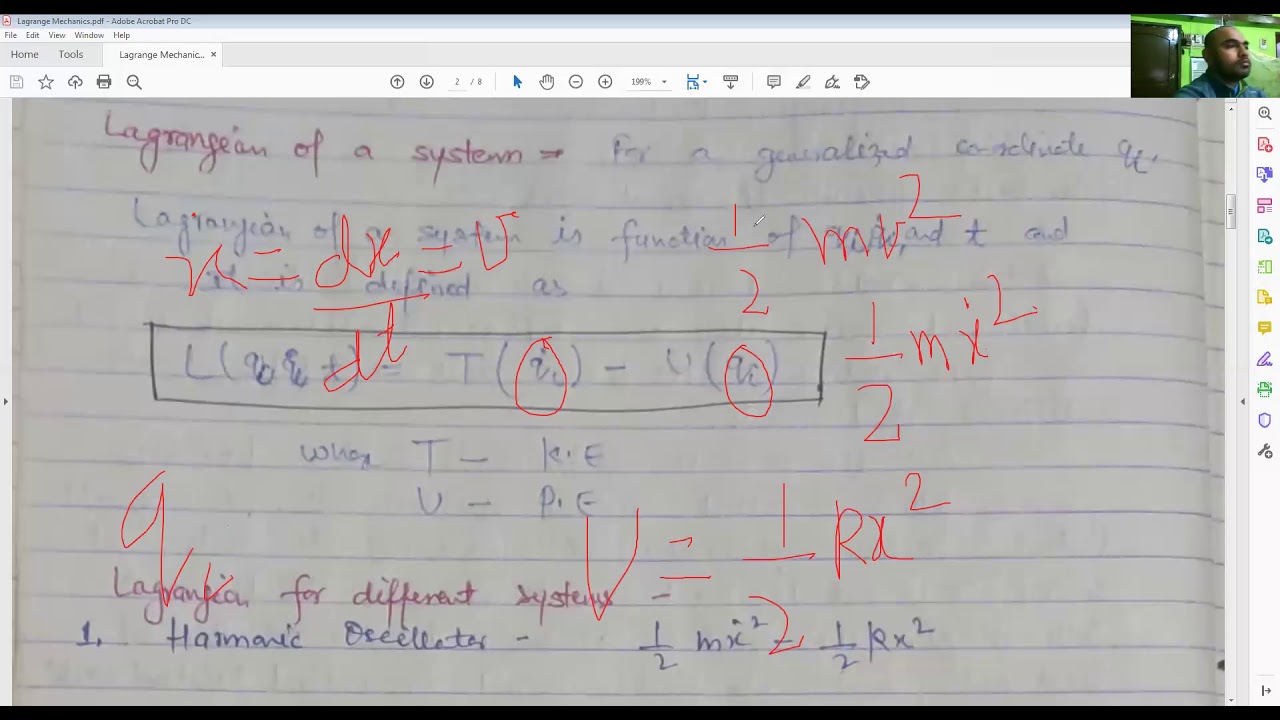 Lagrange Mechanics.pdf - Adobe Acrobat Pro DC
File Edit View Window Help
Home Tools Lagrange Mechanic... ×
2 / 8 199%
Lagrangian of a system ⇒ For a generalized coordinate qᵢ.
Lagrangian of a system is function of and t and
it is defined as
L(qᵢ, q̇ᵢ, t) = T(q̇ᵢ) - U(qᵢ)
ẋ = dx/dt = v
1/2 mv²
1/2 mẋ²
where T - K.E
U - P.E
q
V = 1/2 kx²
Lagrangian for different systems -
1. Harmonic Oscellator - 1/2 mẋ² - 1/2 kx²